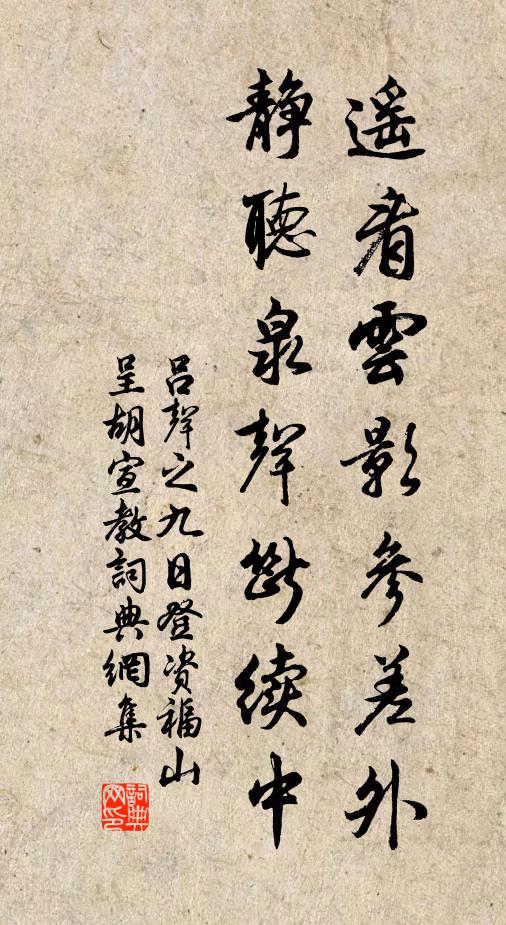 遥看雲影參差外
静聽泉聲斷续中
吕聲之九日登资福山
呈胡宣教詞典網集
詞典网印